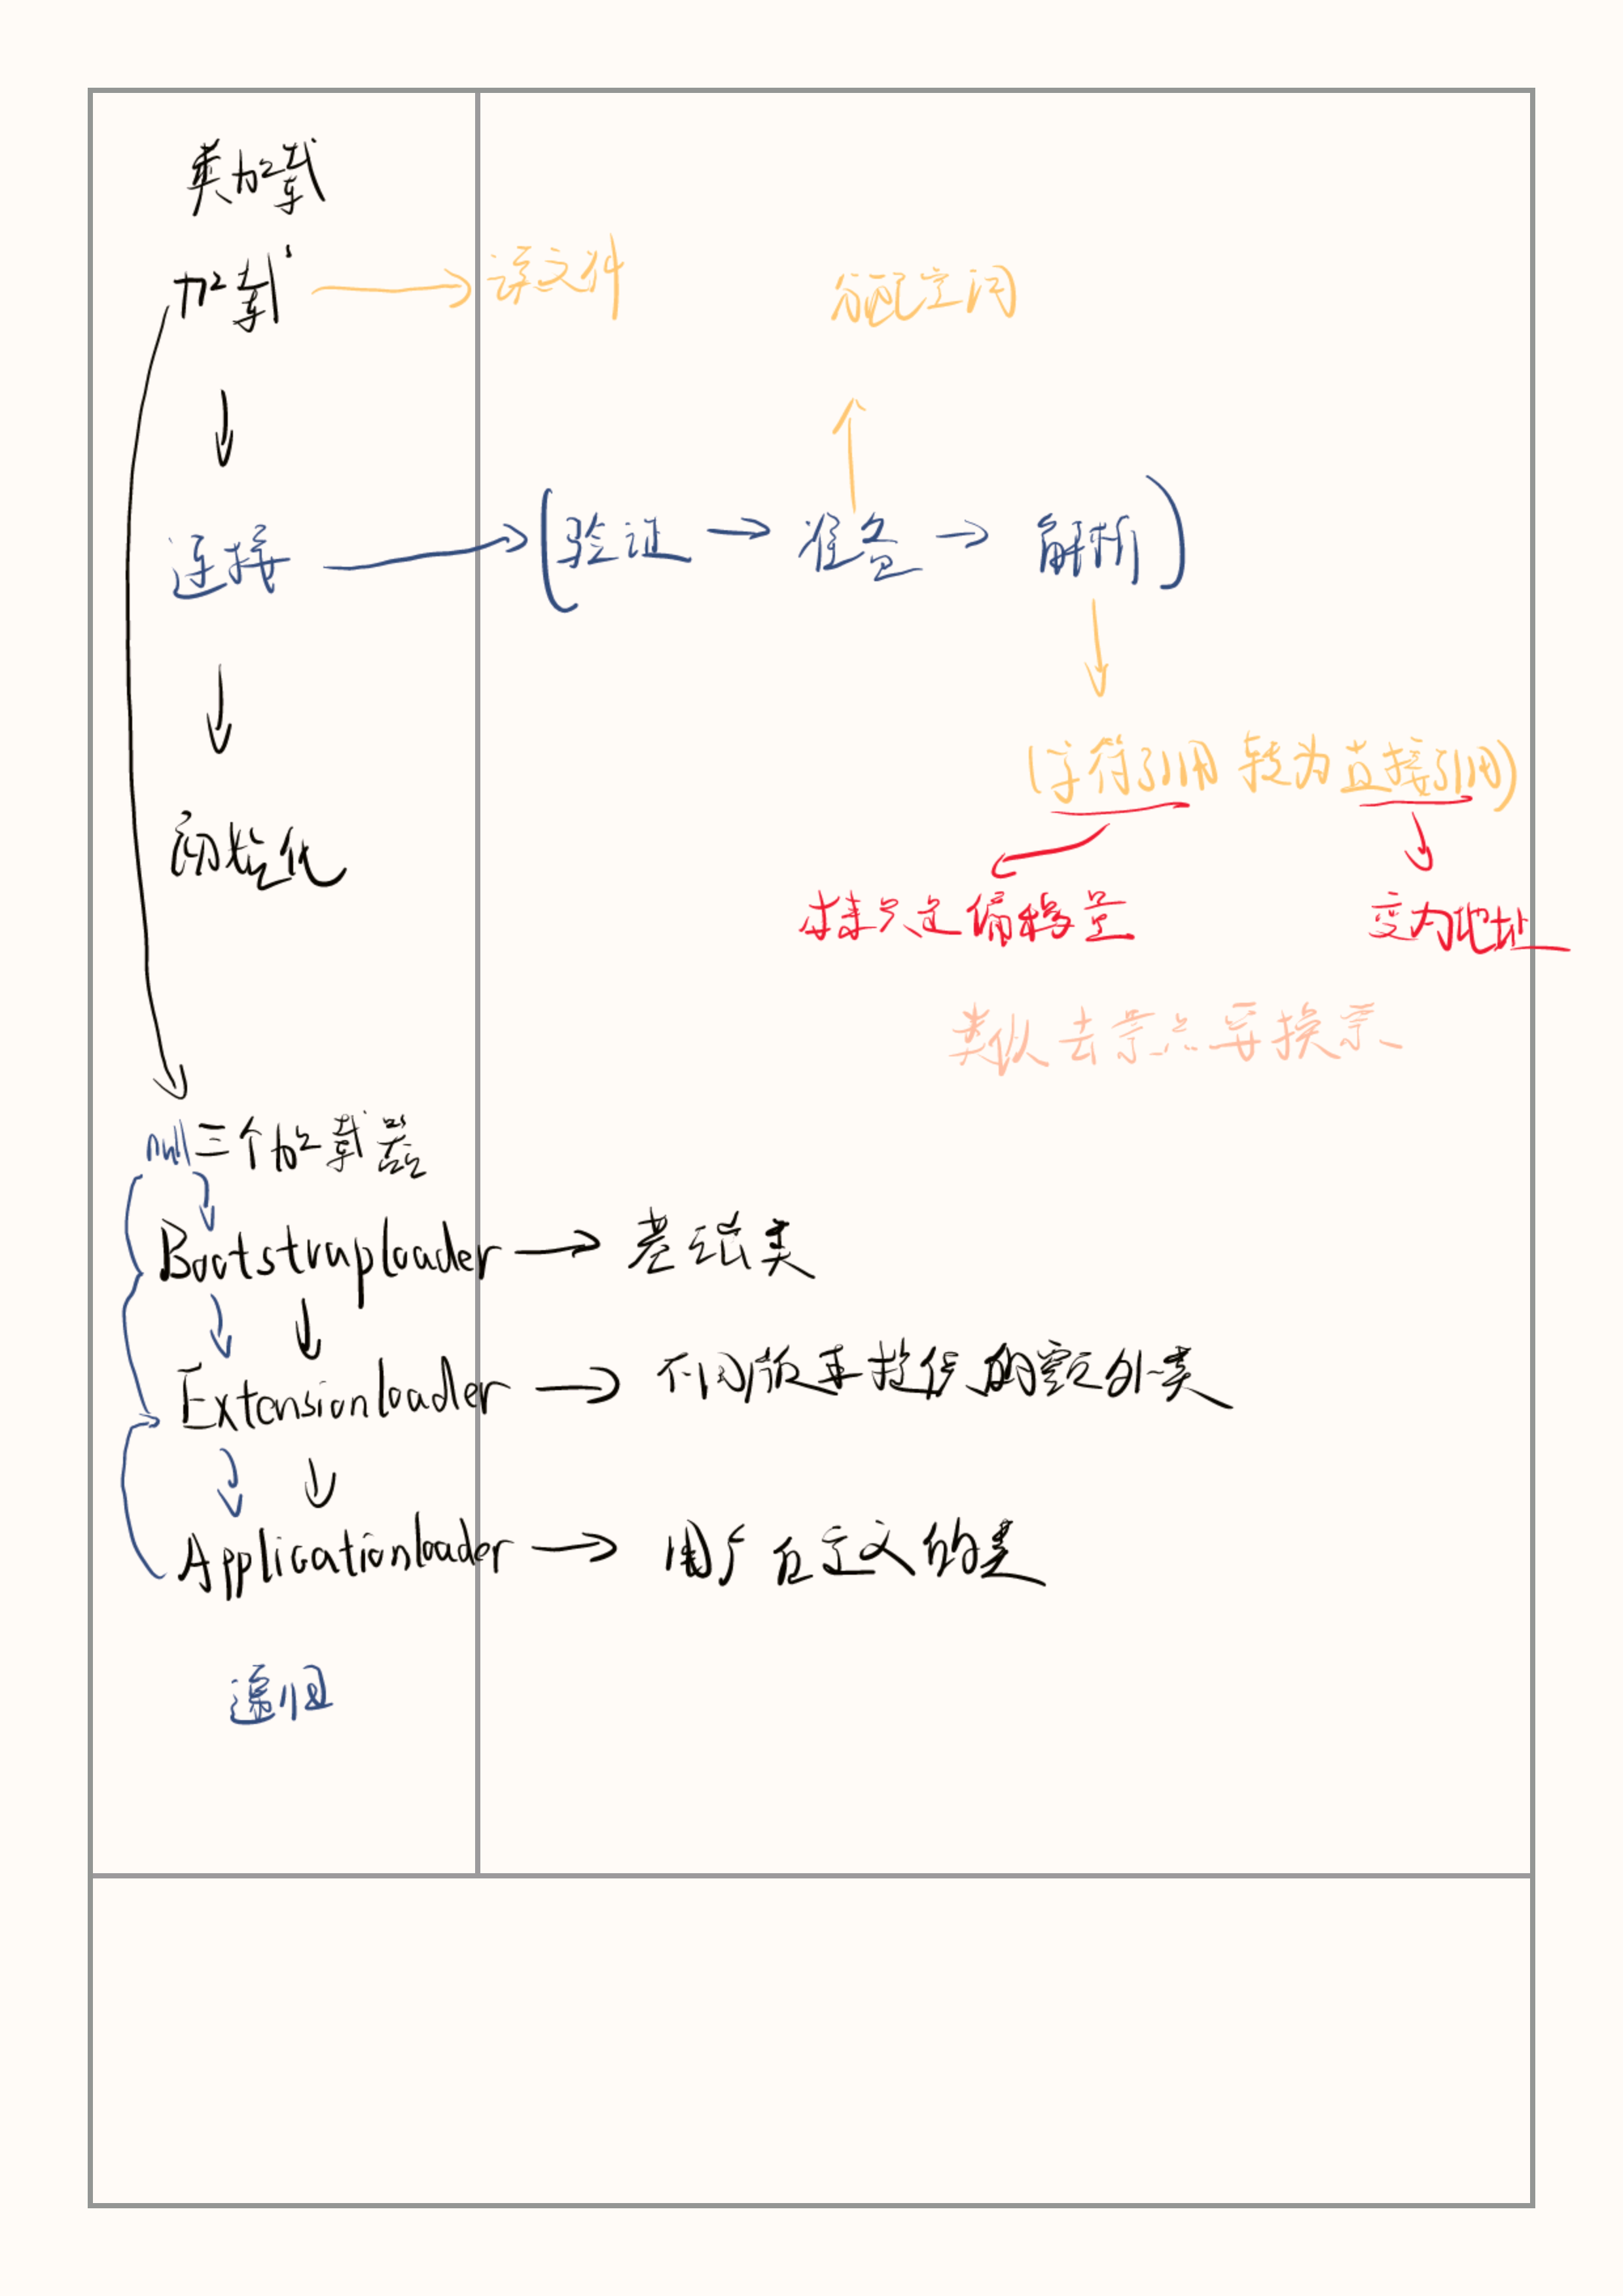 类加载
加载 → 读文件
分配空间
连接 → (验证 → 准备 → 解析)
(字符引用 转为 直接引用)
初始化
本来只是偏移量
变为地址
类似去景点要换票
null 三个加载器
Bootstraploader → 基础类
Extensionloader → 不同版本提供的额外类
Applicationloader → 用户自定义的类
递归